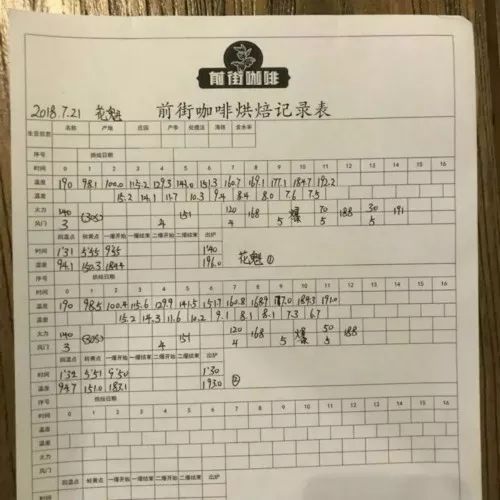 前街咖啡
2018.7.21 花魁 前街咖啡烘焙记录表
名称 产地 庄园 产季 处理法 海拔 含水率
生豆信息
序号 烘焙日期
时间 0 1 2 3 4 5 6 7 8 9 10 11 12 13 14 15 16
温度 190 98.1 100.0 115.2 129.3 141.0 151.3 160.7 169.1 177.1 184.7 192.2
温度 15.2 14.1 11.7 10.3 9.4 8.4 8.0 7.6 7.5
火力 140 (30S) 151 120 168 爆 70 188 30 191
风门 3 4 4 5 5 5
回温点 转黄点 一爆开始 一爆结束 二爆开始 二爆结束 出炉
时间 1'31 5'55 9'55 1'40
温度 94.1 150.3 184.4 196.0 花魁 ①
序号 烘焙日期
时间 0 1 2 3 4 5 6 7 8 9 10 11 12 13 14 15 16
温度 190 98.5 100.4 115.6 129.9 141.5 151.7 160.8 168.9 177.0 184.3 191.0
温度 15.2 14.3 11.6 10.2 9.1 8.1 8.1 7.3 6.7
火力 140 (30S) 151 120 168 爆 50 188
风门 3 4 4 5 5
回温点 转黄点 一爆开始 一爆结束 二爆开始 二爆结束 出炉
时间 1'32 5'51 9'50 1'30
温度 94.7 151.0 183.1 193.0 ②
序号 烘焙日期
时间 0 1 2 3 4 5 6 7 8 9 10 11 12 13 14 15 16
温度
温度
火力
风门
回温点 转黄点 一爆开始 一爆结束 二爆开始 二爆结束 出炉
时间
温度
序号 烘焙日期
时间 0 1 2 3 4 5 6 7 8 9 10 11 12 13 14 15 16
温度